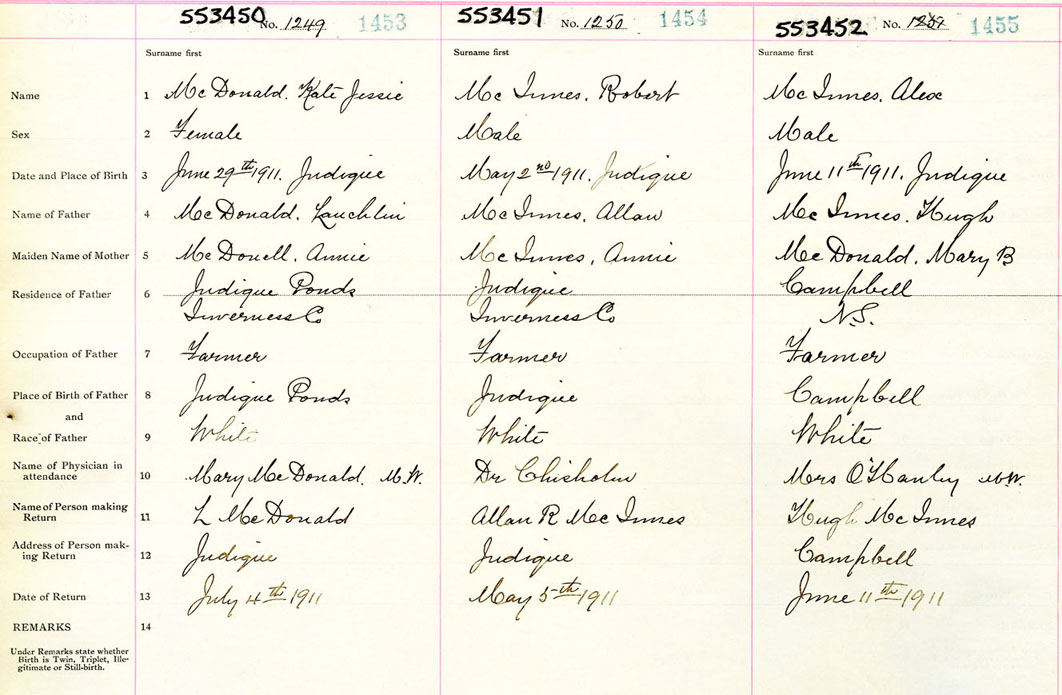 553450 No. 1249 1453 553451 No. 1250 1454 553452 No. 1455
Surname first Surname first Surname first
Name 1 McDonald. Kate Jessie Mc Innes. Robert Mc Innes. Alex
Sex 2 Female Male Male
Date and Place of Birth 3 June 29th 1911. Judique May 2nd 1911. Judique June 11th 1911. Judique
Name of Father 4 McDonald. Lauchlin Mc Innes. Allan Mc Innes. Hugh
Maiden Name of Mother 5 McDonell. Annie Mc Innes, Annie McDonald. Mary B
Residence of Father 6 Judique Ponds Judique Campbell
Inverness Co Inverness Co N.S.
Occupation of Father 7 Farmer Farmer Farmer
Place of Birth of Father 8 Judique Ponds Judique Campbell
and
Race of Father 9 White White White
Name of Physician in attendance 10 Mary McDonald. M.W. Dr Chisholm Mrs O'Hanley M.W.
Name of Person making Return 11 L McDonald Allan R McInnes Hugh McInnes
Address of Person mak-ing Return 12 Judique Judique Campbell
Date of Return 13 July 4th 1911 May 5th 1911 June 11th 1911
REMARKS 14
Under Remarks state whether
Birth is Twin, Triplet, Ille-
gitimate or Still-birth.